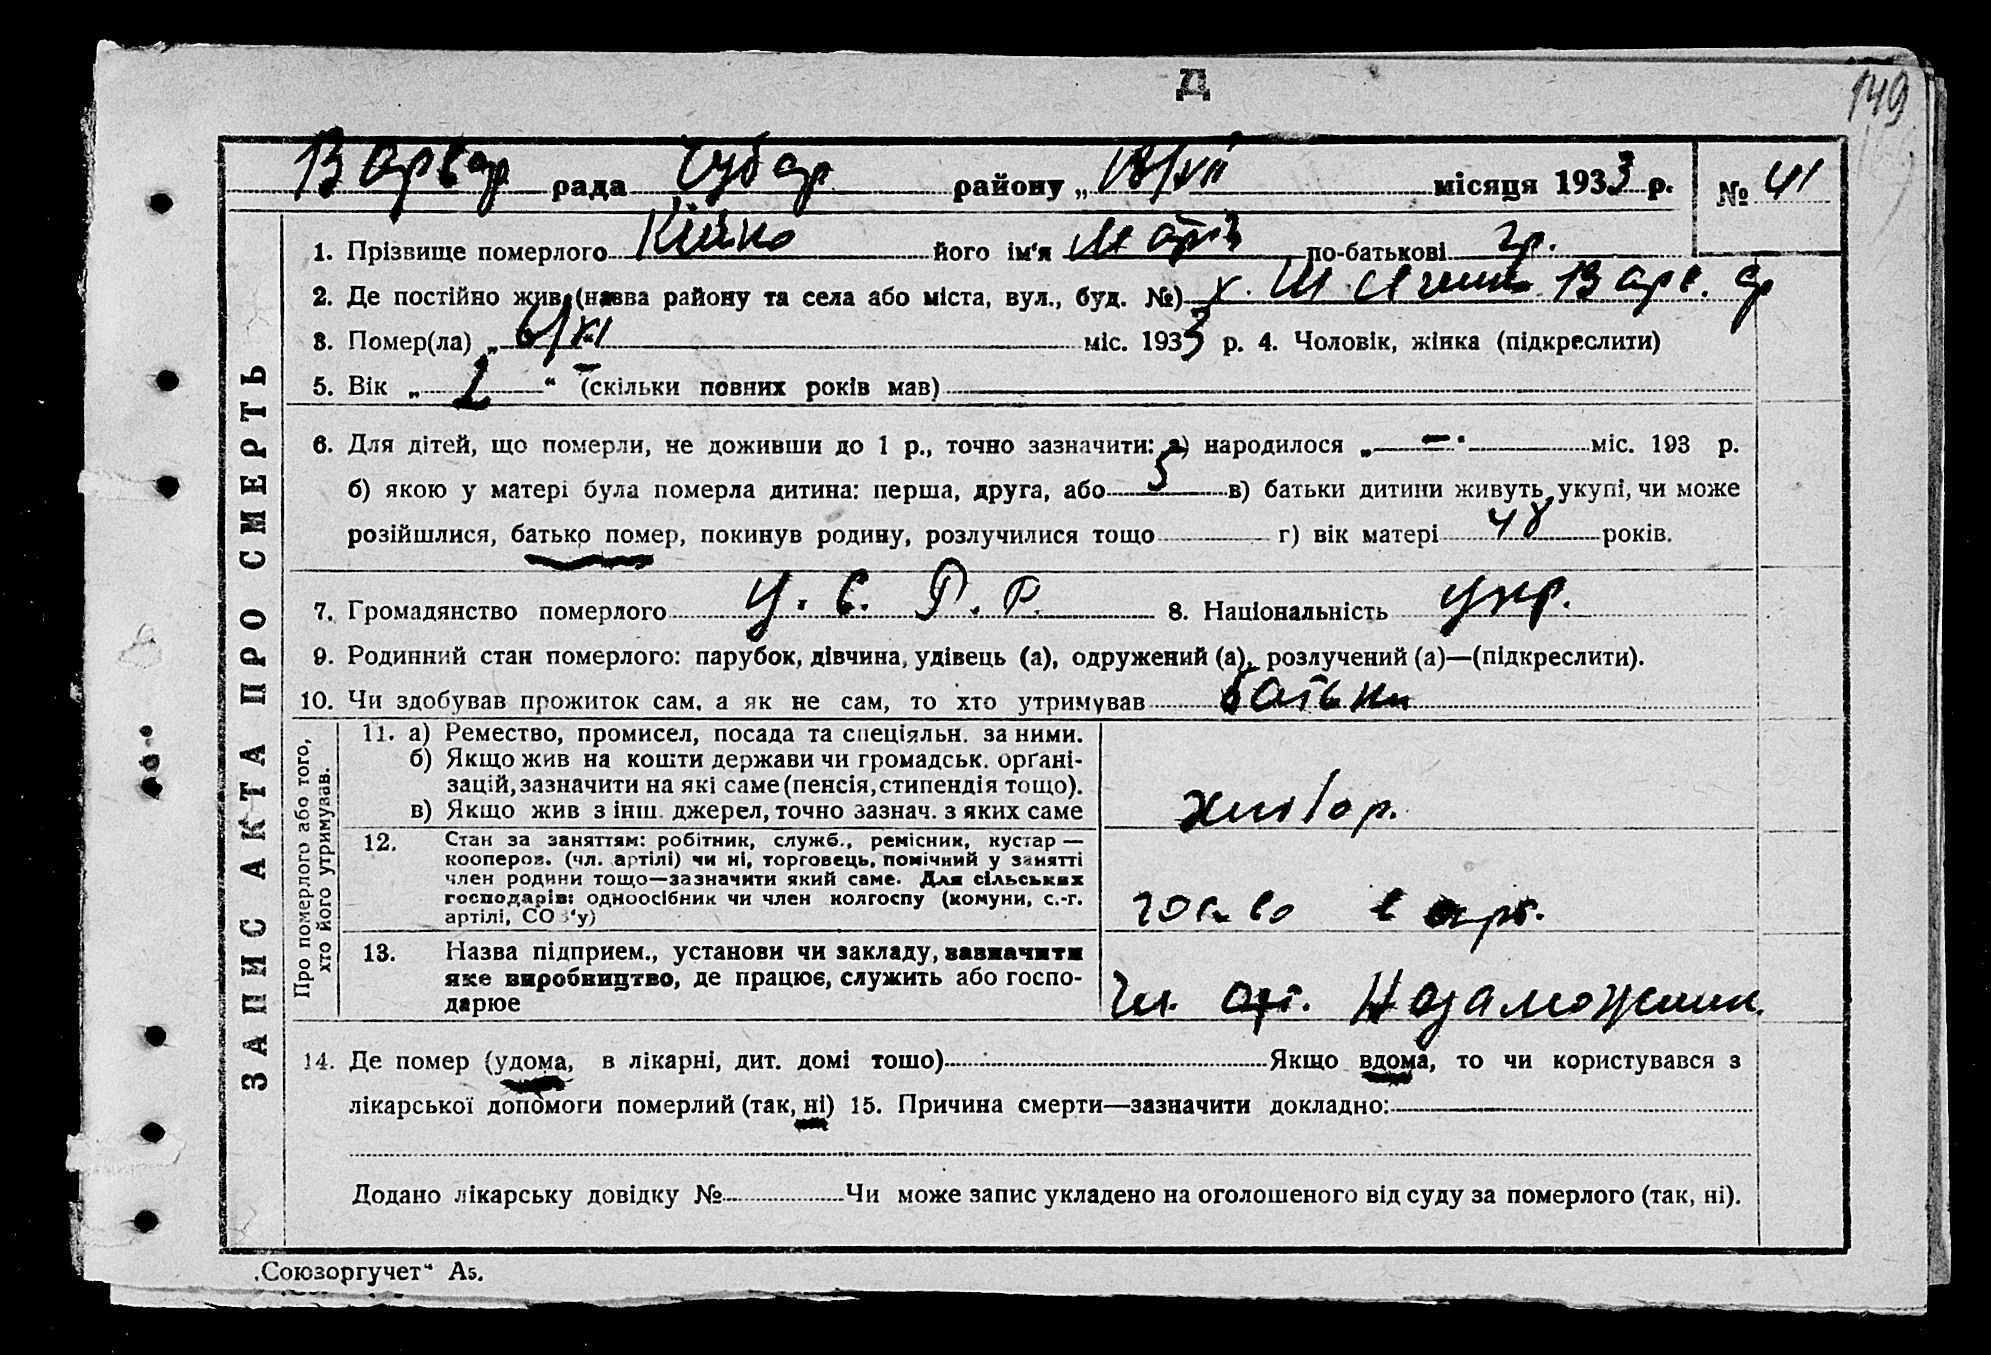 Д
149
Варвар рада Чубар району „ 18/XII місяця 1933 р. № 41
ЗАПИС АКТА ПРО СМЕРТЬ
1. Прізвище померлого Кійко його ім'я по-батькові гр.
2. Де постійно жив (назва району та села або міста, вул., буд. №) х. Варв. ср
3. Помер(ла) „ 6/XI міс. 1933 р. 4. Чоловік, жінка (підкреслити)
5. Вік „ “ (скільки повних років мав)
6. Для дітей, що померли, не доживши до 1 р., точно зазначити: а) народилося „ — “ міс. 193 р.
б) якою у матері була померла дитина: перша, друга, або 5 в) батьки дитини живуть укупі, чи може
розійшлися, батько помер, покинув родину, розлучилися тощо г) вік матері 48 років.
7. Громадянство померлого У. С. Р. Р. 8. Національність укр.
9. Родинний стан померлого: парубок, дівчина, удівець (а), одружений (а), розлучений (а)—(підкреслити).
10. Чи здобував прожиток сам, а як не сам, то хто утримував батьки
Про померлого або того,
хто його утримував.
11. а) Ремество, промисел, посада та спеціяльн. за ними.
б) Якщо жив на кошти держави чи громадськ. орґані-
зацій, зазначити на які саме (пенсія, стипендія тощо).
в) Якщо жив з інш. джерел, точно зазнач. з яких саме
хлібор.
12. Стан за заняттям: робітник, служб., ремісник, кустар —
кооперов. (чл. артілі) чи ні, торговець, помічний у занятті
член родини тощо—зазначити який саме. Для сільських
господарів: одноосібник чи член колгоспу (комуни, с.-г.
артілі, СОЗ'у)
госп-во в арт.
13. Назва підприєм., установи чи закладу, зазначити
яке виробництво, де працює, служить або госпо-
дарює
Чл. арт. Незаможник.
14. Де помер (удома, в лікарні, дит. домі тошо) Якщо вдома, то чи користувався з
лікарської допомоги померлий (так, ні) 15. Причина смерти—зазначити докладно:
Додано лікарську довідку № Чи може запис укладено на оголошеного від суду за померлого (так, ні).
„Союзоргучет“ А5.